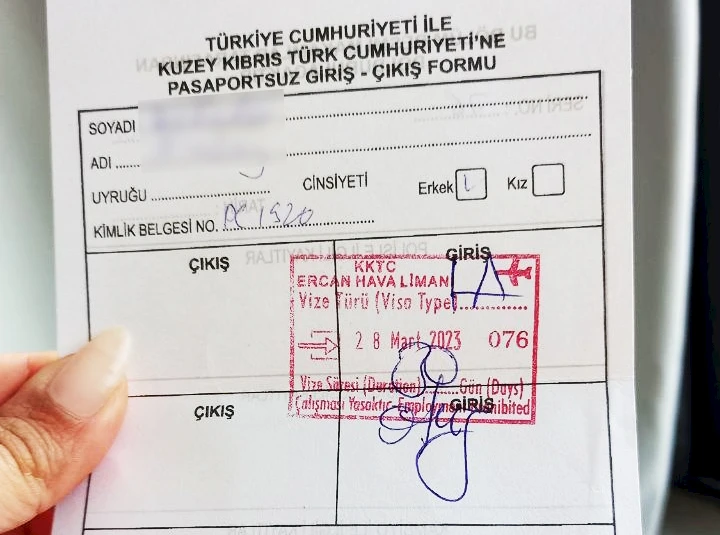 TÜRKİYE CUMHURİYETİ İLE
KUZEY KIBRIS TÜRK CUMHURİYETİ'NE
PASAPORTSUZ GİRİŞ - ÇIKIŞ FORMU
SOYADI
ADI
UYRUĞU CİNSİYETİ Erkek Kız
KİMLİK BELGESİ NO.
ÇIKIŞ GİRİŞ
KKTC
ERCAN HAVA LİMANI
Vize Türü (Visa Type)
28 Mart 2023 076
Vize Süresi (Duration) Gün (Days)
Çalışması Yasaktır-Employment Prohibited
ÇIKIŞ GİRİŞ